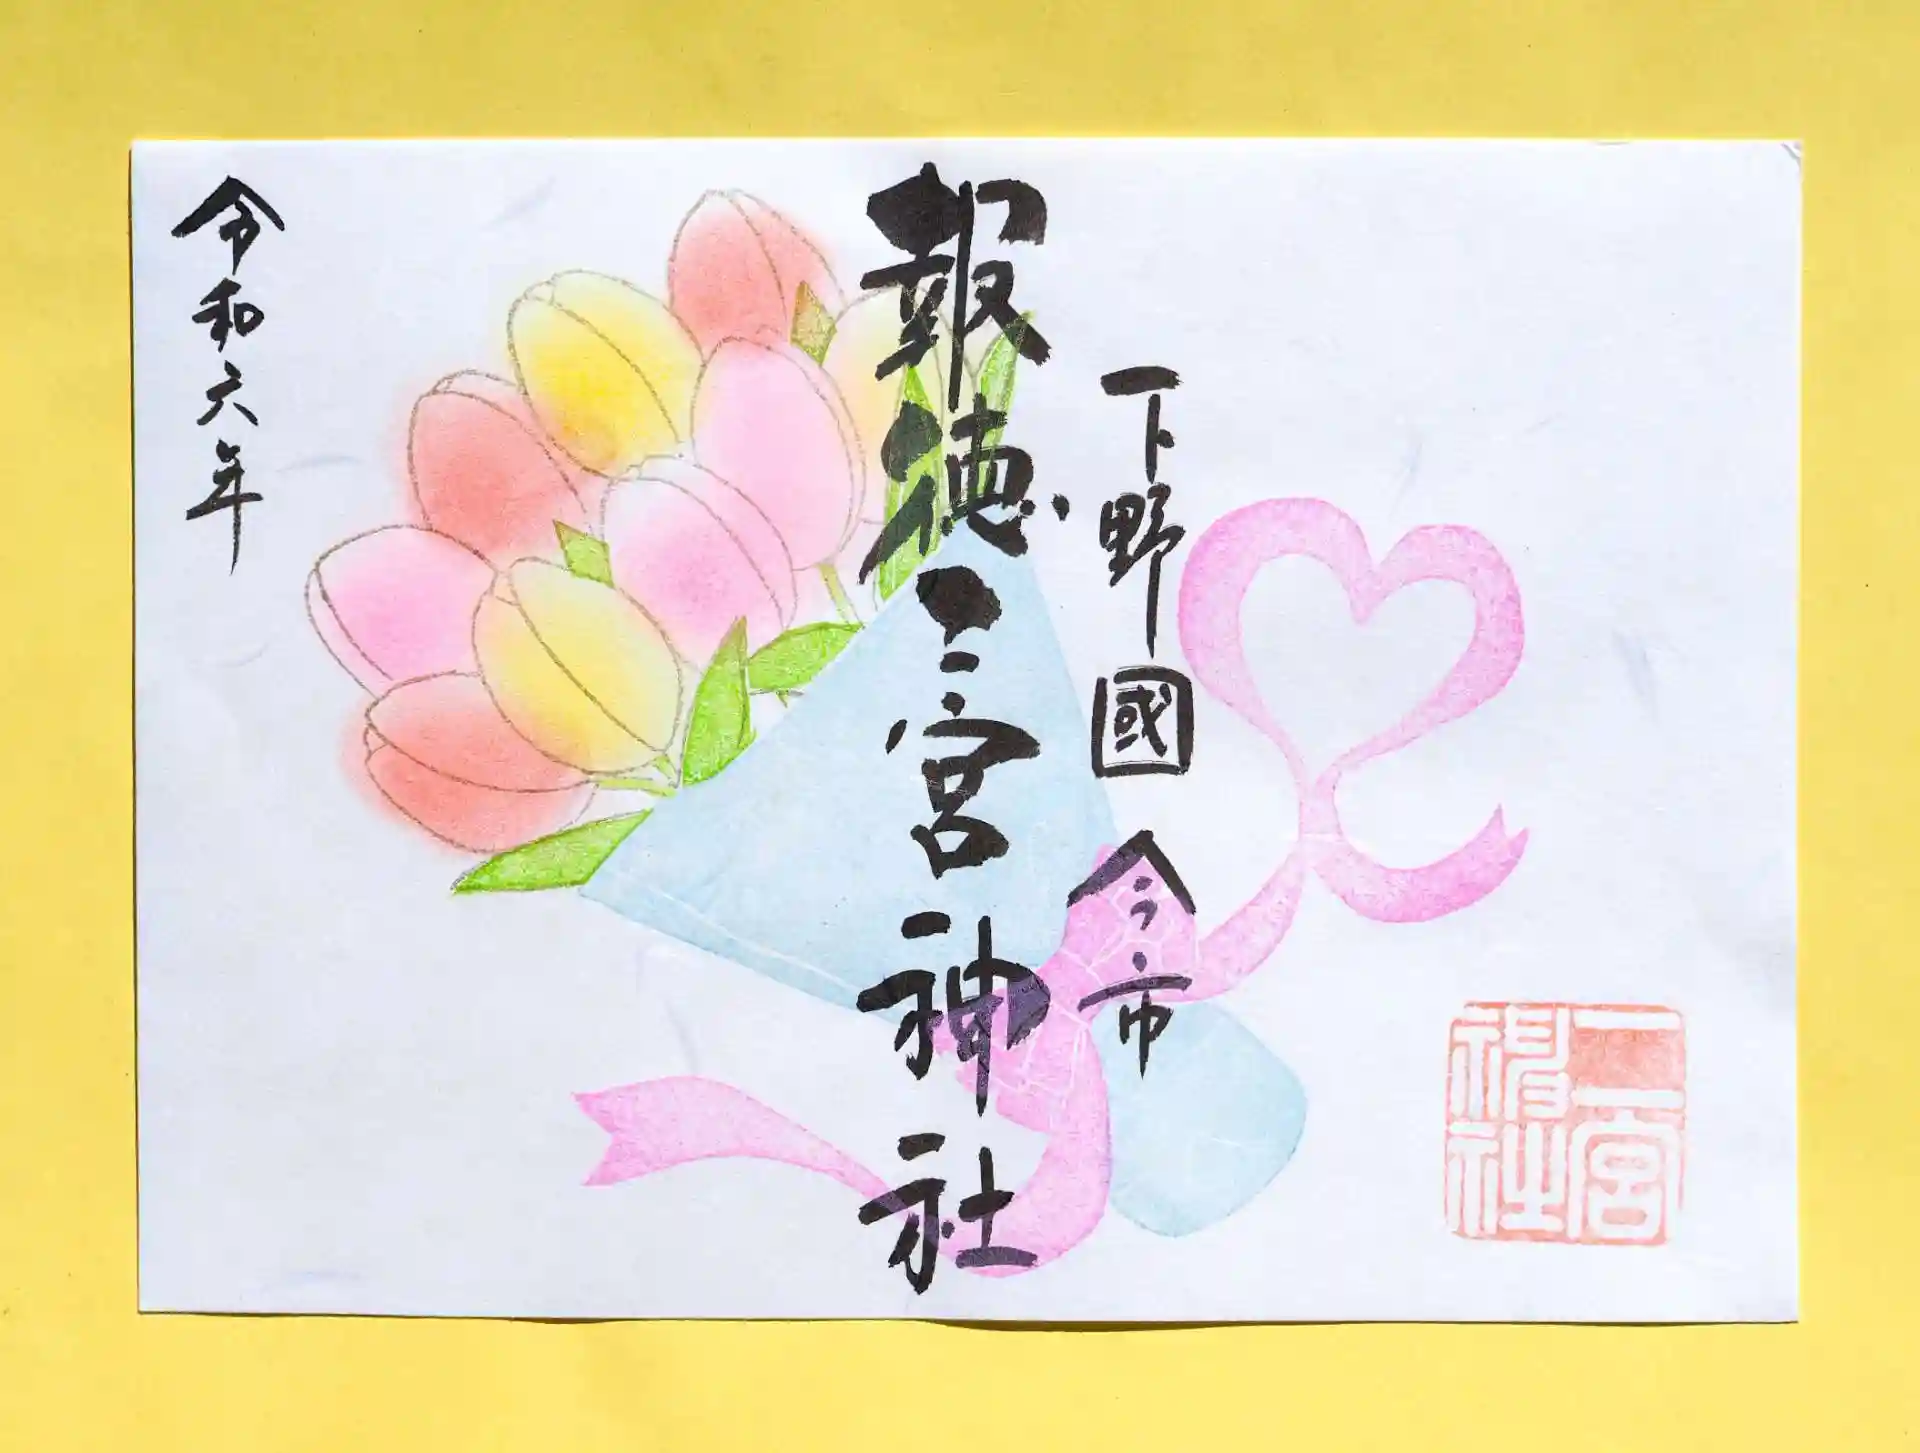 下野國 今市
報徳二宮神社
令和六年
二宮神社